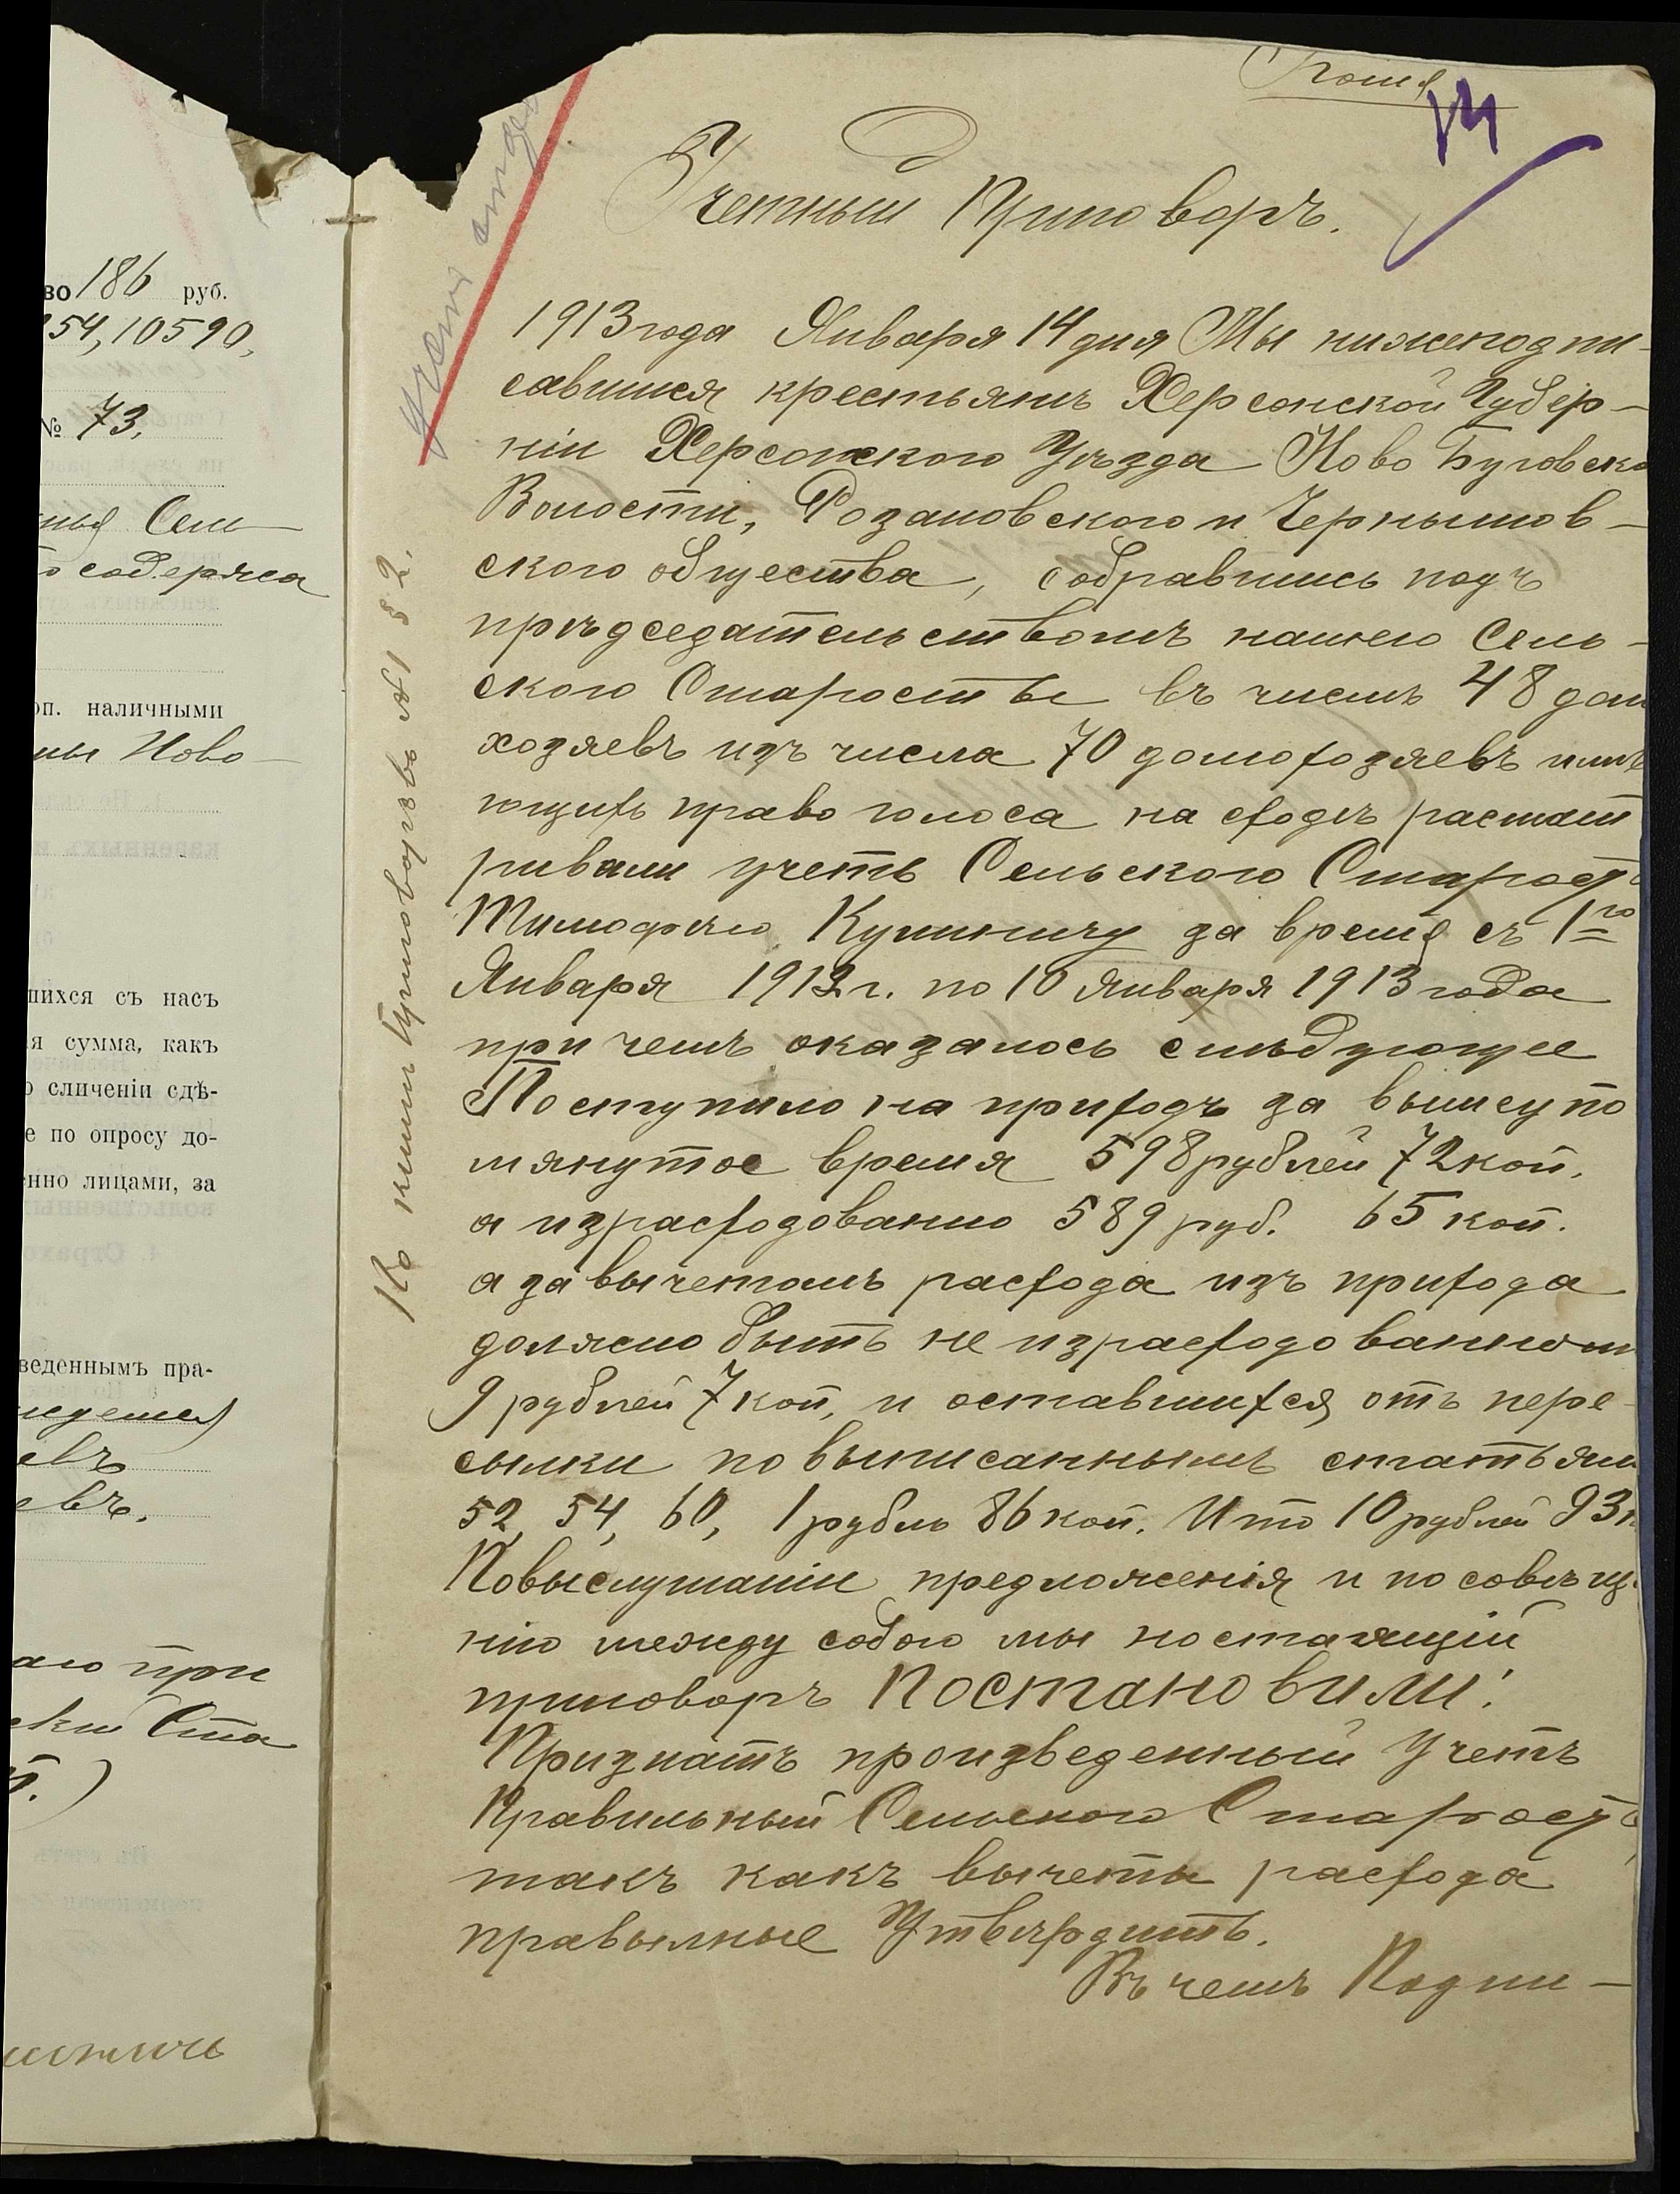 во 186 руб.
54, 10590,
№ 73.
содержа
оп. наличными
Ново-
шихся съ насъ
я сумма, какъ
о сличеніи сдѣ-
е по опросу до-
нно лицами, за
веденнымъ пра-
евъ
евъ.
аго при
Ста
Копія
14
Учетный Приговоръ.
1913 года Января 14 дня Мы нижеподпи-
савшися крестьянъ Херсонской Губер-
ніи Херсонского Уѣзда Ново Буговско
Волости, Розановского и Чернышов-
ского общества, собравшись подъ
прѣдседательствомъ нашего Сель-
ского Старосты въ числѣ 48 дом
хозяевъ изъ числа 70 домохозяевъ имѣ
ющихъ право голоса на сходѣ расмат
ривали учетъ Сельского Старосты
Тимофею за время съ 1го
Января 1912 г. по 10 Января 1913 года
при чемъ оказалось слѣдующее
Поступило на приходъ за вышеупо
мянутое время 598 рублей 72 коп.
а израсходованно 589 руб. 65 коп.
а за вычетомъ расхода изъ прихода
должно быть не израсходованном
9 рублей 7 коп, и оставшихся отъ пере
сылки по выписаннымъ статьям
52, 54, 60, 1 рубль 86 коп. Ито 10 рублей 93 к
Повыслушаніи предложенія и по совѣще
нію между собою мы ностаящій
приговоръ Постановили:
Признатъ произведенный Учетъ
Правильный Сельского Старосты
такъ какъ вычеты расхода
правылные Утвердить.
Въ чемъ Подпи-
По книги Приговоровъ №1 § 2.